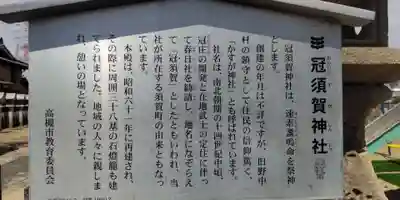 冠須賀神社
冠須賀神社は、速素盞嗚命を祭神
とします。
創建の年月は不詳ですが、旧野中
村の鎮守として住民の信仰篤く、
「かすが神社」とも呼ばれています。
社名は、南北朝期の十四世紀中頃、
冠庄の開発と在地武士の定住に伴っ
て春日社を勧請し、地名になぞらえ
て「冠須賀」としたともいわれ、当
社が所在する須賀町の由来ともなっ
ています。
本殿は、昭和六十二年に再建され、
その際に周囲に三十八基の石燈籠も建
てられました。地域の人々に親しま
れ、憩いの場となっています。
高槻市教育委員会